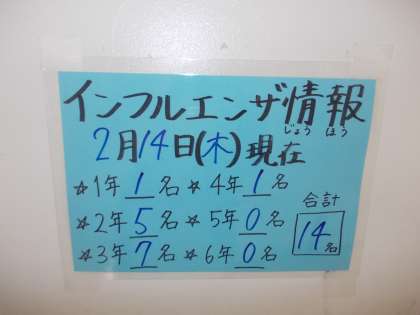 インフルエンザ情報
じょう ほう
2月14日(木)現在
☆1年 1名 ☆4年 1名
☆2年 5名 ☆5年 0名
☆3年 7名 ☆6年 0名
合計
14名